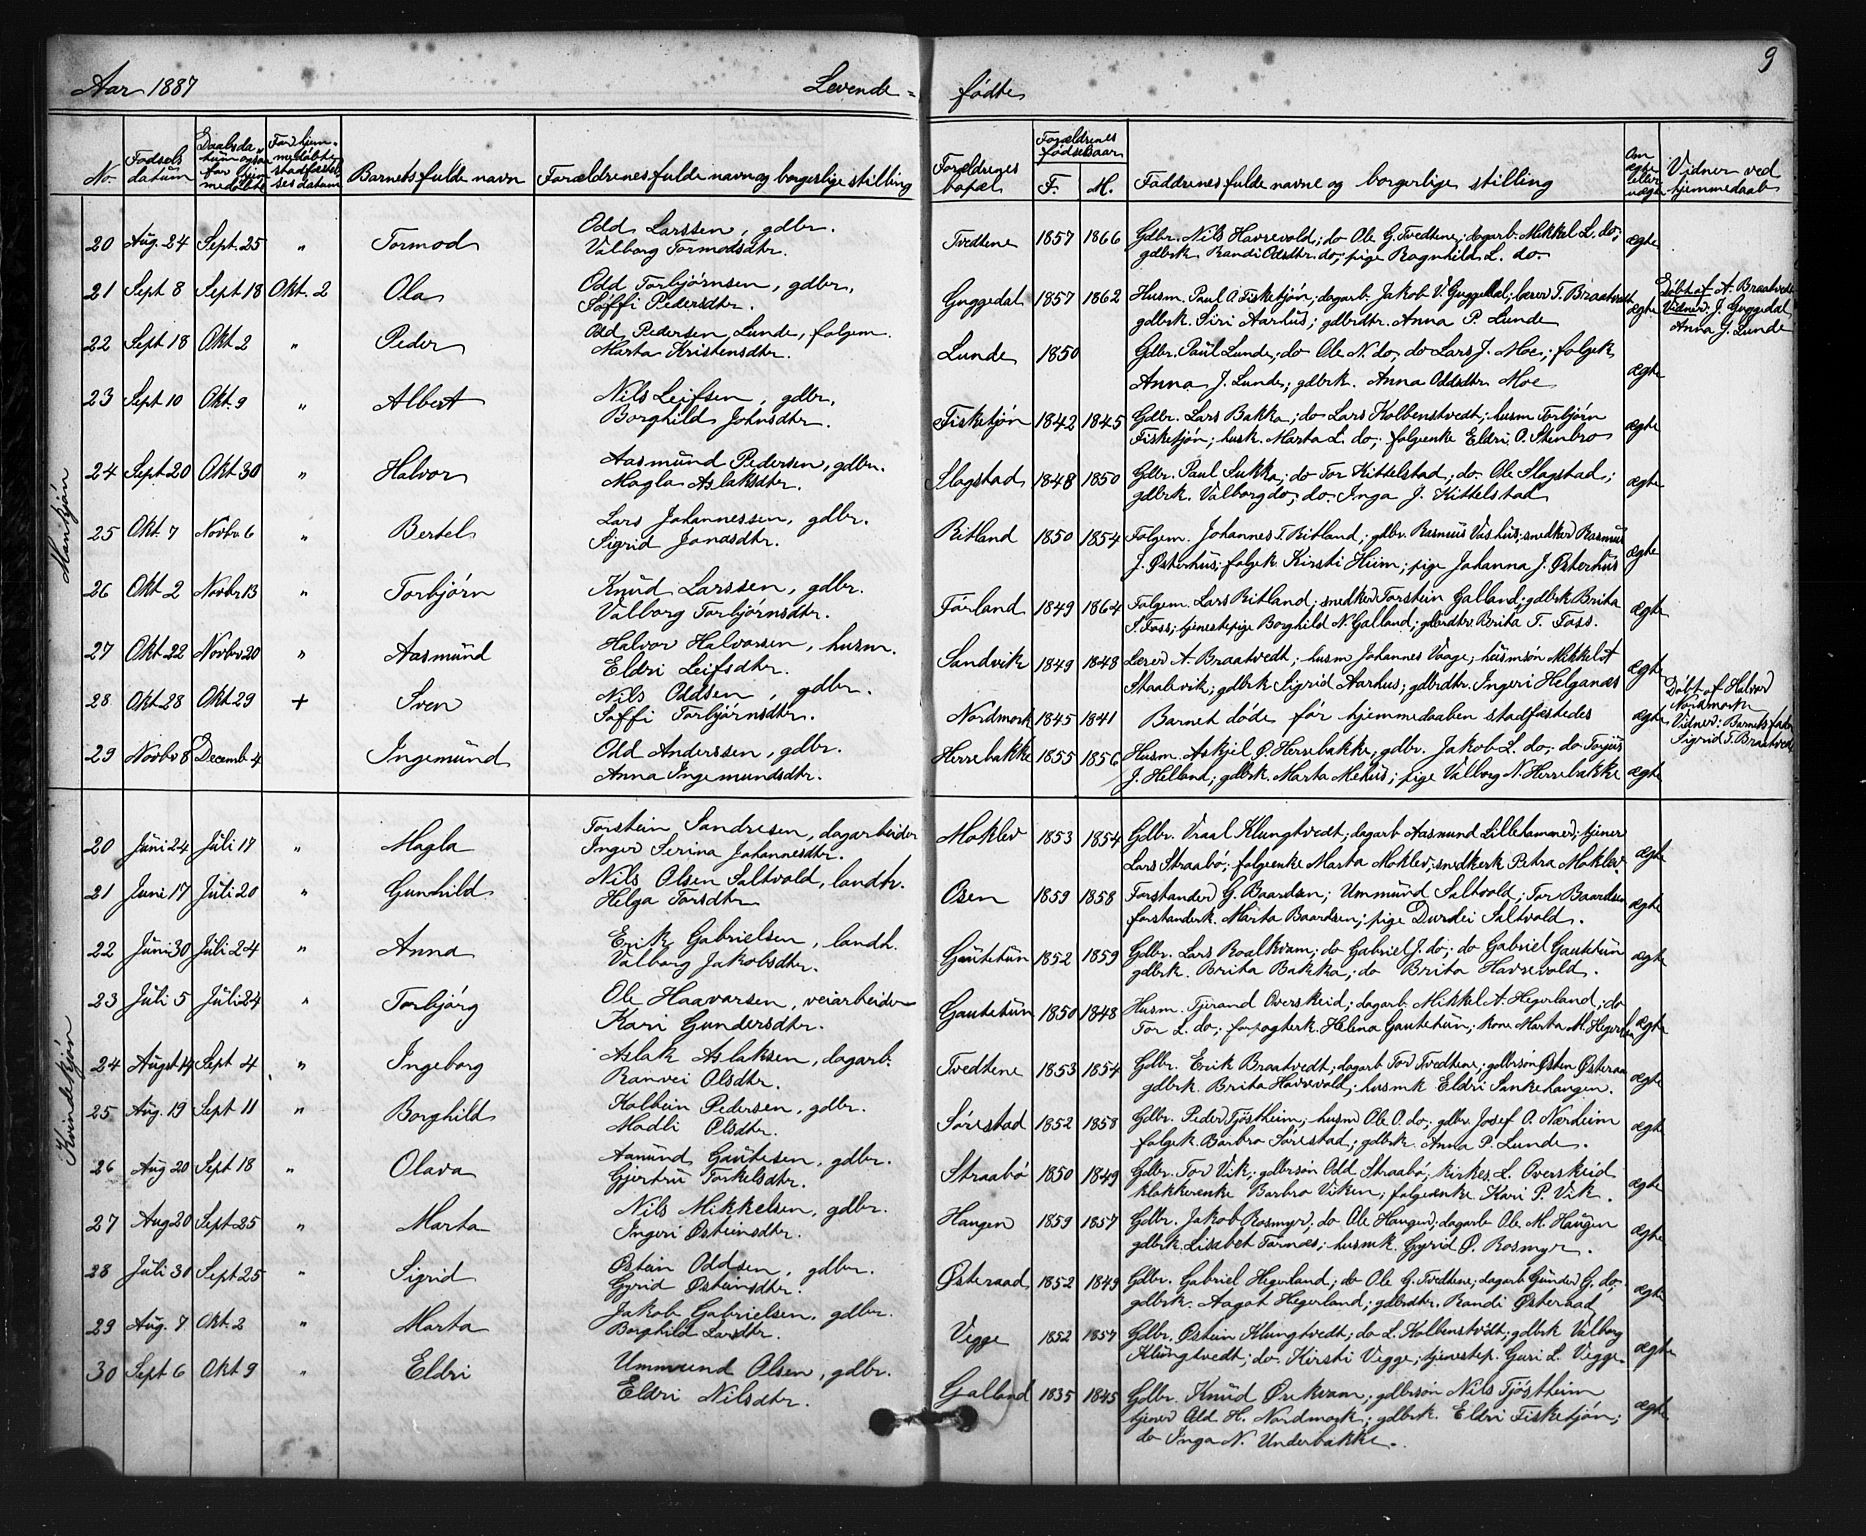 9
Aar 1887 Levende- fødte
No. Fødsels datum Daabsdatum ogsaa for hjemmedøbte For hjemmedøbte stadfæstelses datum Barnets fulde navn Forældrenes fulde navn og borgerlige stilling Forældrenes bopæl Forældrenes fødselsaar F. M. Faddrenes fulde navne og borgerlige stilling Om ægte eller uægte Vidner ved hjemmedaab
Mankjøn
20 Aug. 24 Sept. 25 " Tormod Odd Larssen, gdbr. Tvedtene 1857 1866 Gdbr. Nils Havrevold; do Ole G. Tvedtene; dagarb. Mikkel L. do; ægte
Valborg Tormodsdtr. gdbrk. Randi Oddsdtr. do; pige Ragnhild L. do.
21 Sept 8 Sept 18 Okt. 2 Ola Odd Torbjørnsen, gdbr. Guggedal 1857 1862 Husm. Paul O. Fisketjøn; dagarb. Jakob V. Guggedal; lærer T. Braatvedt ægte Døbt af A. Braatvedt
Søffi Pedersdtr. gdbrk. Siri Aarhus; gdbrdtr. Anna P. Lunde Vidner: J. Guggedal,
Anna J. Lunde
22 Sept 18 Okt 2 " Peder Odd Pedersen Lunde, folgem. Lunde 1850 Gdbr. Paul Lunde; do Ole N. do; do Lars J. Moe; folgek. ægte
Marta Kristensdtr. Anna J. Lunde; gdbrk. Anna Oddsdtr. Moe
23 Sept 10 Okt. 9 " Albert Nils Leifsen, gdbr. Fisketjøn 1842 1845 Gdbr. Lars Bakka; do Lars Kolbenstvedt; husm Torbjørn ægte
Borghild Johnsdtr. Fisketjøn; husk. Marta L. do; folgeenke Eldri O. Stenbro
24 Sept 20 Okt 30 " Halvor Aasmund Pedersen, gdbr. Slagstad 1848 1850 Gdbr. Paul Sukka; do Tor Kittelstad; do. Ole Slagstad; ægte
Magla Aslaksdtr. gdbrk. Valborg do; do. Inga J. Kittelstad
25 Okt. 7 Novbr 6 " Bertel Lars Johannessen, gdbr. Ritland 1850 1854 Folgem. Johannes T. Ritland; gdbr. Rasmus Vashus; snedker Rasmus ægte
Sigrid Jonasdtr. J. Østerhus; folgek. Kirsti Hiim; pige Johanna J. Østerhus
26 Okt 2 Novbr 13 " Torbjørn Knud Larssen, gdbr. Førland 1849 1864 Folgem. Lars Ritland; snedker Torstein Galland; gdbrk Brita ægte
Valborg Torbjørnsdtr. S. Foss; tjenestepige Borghild N. Galland; gdbrdtr. Berita T. Foss.
27 Okt 22 Novbr 20 " Aasmund Halvor Halvorsen, husm. Sandvik 1849 1848 Lærer A. Braatvedt; husm Johannes Vaage; husmsøn Mikkel A ægte
Eldri Leifsdtr. Staalevik; gdbrk Sigrid Aarhus; gdbrdtr. Ingeri Helganæs
28 Okt 28 Okt 29 + Sven Nils Oddsen, gdbr. Nordmork 1845 1841 Barnet døde før hjemmedaaben stadfæstedes ægte Døbt af Halvor
Søffi Torbjørnsdtr. Nordmork
Vidner: Barnets fader
Sigrid T. Braatvedt
29 Novbr 8 Decemb 4 Ingemund Odd Anderssen, gdbr. Herrebakke 1855 1856 Husm. Askjil Ø. Herrebakke; gdbr. Jakob L. do; do Torjus ægte
Anna Ingemundsdtr. J. Helland; gdbrk. Marta Mehus; pige Valborg N. Herrebakke
Kvindekjøn
20 Juni 24 Juli 17 " Magla Torstein Sandresen, dagarbeider Moklev 1853 1854 Gdbr. Vraal Klungtvedt; dagarb Aasmund Lillehammer; tjener ægte
Inger Serina Johannesdtr. Lars Straabø; folgeenke Marta Moklev; snedkerk Petra Moklev.
21 Juni 17 Juli 20 " Gunhild Nils Olsen Saltvold, landh. Osen 1859 1858 Forstander G. Baardsen; Ummund Saltvold; Tor Baardsen ægte
Helga Torsdtr forstanderk. Marta Baardsen; pige Durdei Saltvold.
22 Juni 30 Juli 24 " Anna Erik Gabrielsen, landh. Gautetun 1852 1859 Gdbr. Lars Roalkvam; do Gabriel J. do; do Gabriel Gautetun ægte
Valborg Jakobsdtr. gdbrk. Brita Bakka; do Brita Havrevold.
23 Juli 5 Juli 24 " Torbjørg Ole Haavarsen, veiarbeider Gautetun 1850 1848 Husm. Tjerand Overskeid; dagarb. Mikkel A. Hegerland; do ægte
Kari Gundersdtr. Tor L. do; forpagterk. Helena Gautetun; kone Marta M. Hegerland
24 August 14 Sept 4 " Ingeborg Aslak Aslaksen, dagarb. Tvedtene 1853 1854 Gdbr. Erik Braatvedt; dagarb Tor Tvedtene; gdbrsøn Østen Østeraa ægte
Ranvei Olsdtr. gdbrk. Brita Havrevold; husmk. Eldri Sankehaugen.
25 Aug. 19 Sept 11 " Borghild Kolbein Pedersen, gdbr. Sørestad 1852 1858 Gdbr. Peder Tjøstheim; husm Ole O. do; gdbr. Josef O. Nærheim ægte
Madli Olsdtr. folgek. Barbro Sørestad; gdbrk. Anna P. Lunde.
26 Aug 20 Sept 18 " Olava Aanund Gautesen, gdbr. Straabø 1850 1849 Gdbr. Tor Vik; gdbrsøn Odd Straabø; kirkes. L. Overskeid ægte
Gjertru Torkelsdtr. klokkerenke Barbro Viken; folgeenke Kari P. Vik.
27 Aug 20 Sept. 25 " Marta Nils Mikkelsen, gdbr. Haugen 1859 1857 Gdbr. Jakob Rosmyr; do Ole Haugen; dagarb Ole M. Haugen ægte
Ingeri Østeinsdtr. gdbrk. Lisabet Tornæs; husmk. Gyrid Ø. Rosmyr.
28 Juli 30 Sept 25 " Sigrid Østein Oddsen, gdbr. Østeraad 1852 1849 Gdbr. Gabriel Hegerland; do Ole G. Tvedtene; dagarb Gunder G. do. ægte
Gyrid Østeinsdtr. gdbrk. Aagot Hegerland; gdbrdtr. Randi Østeraad
29 Aug. 7 Okt. 2 " Marta Jakob Gabrielsen, gdbr. Vegge 1852 1857 Gdbr. Østein Klungtvedt; do L. Kolbenstvdt; gdbrk Valborg ægte
Borghild Larsdtr. Klungtvedt; do. Kirsti Vegge; tjenestep. Guri L. Vegge.
30 Sept 6 Okt 9 " Eldri Ummund Olsen, gdbr. Galland 1835 1845 Gdbr. Knud Ørekvam; gdbrsøn Nils Tjøstheim ægte
Eldri Nilsdtr. tjener Odd H. Nordmork; gdbrk. Eldri Fisketjøn;
do Inga N. Underbakke.